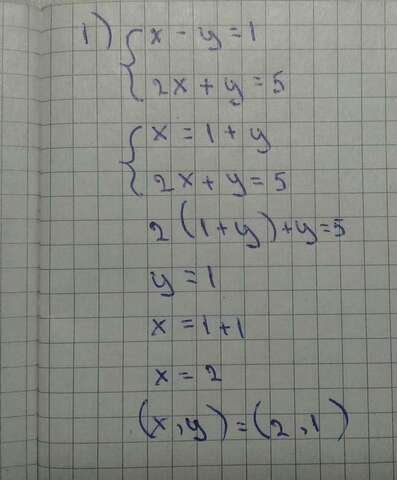 1) { x - y = 1
2x + y = 5
{ x = 1 + y
2x + y = 5
2(1+y)+y=5
y = 1
x = 1+1
x = 2
(x,y)=(2,1)